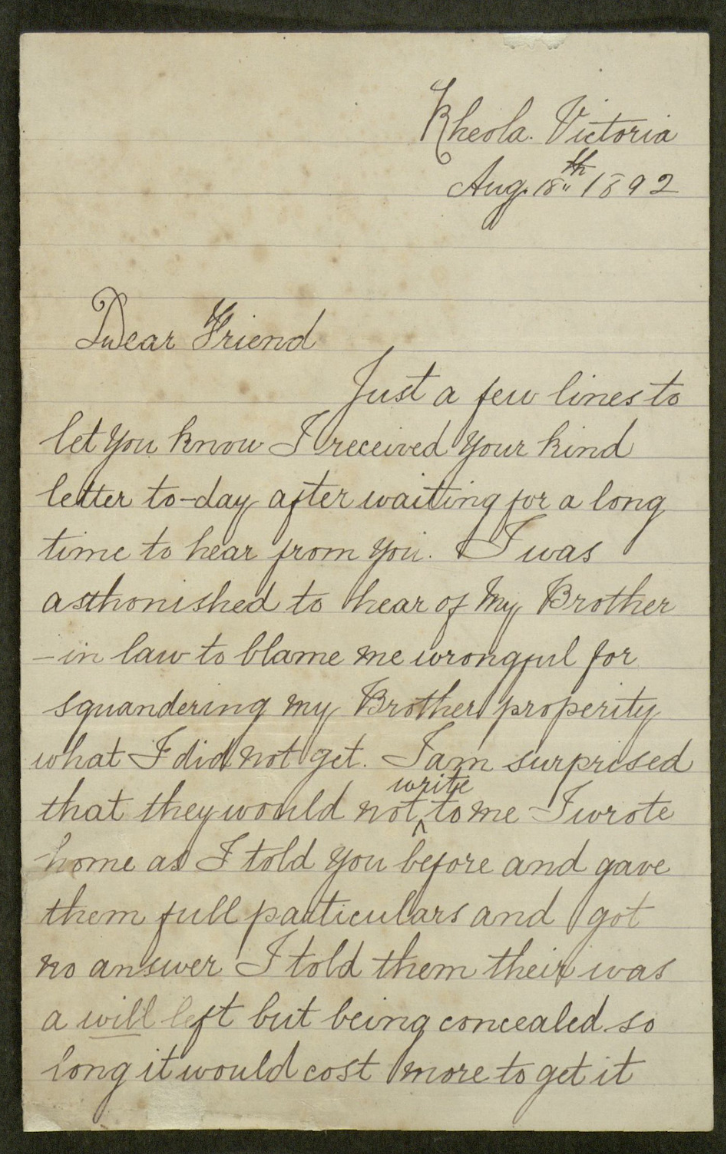 Kheola. Victoria
Aug. 18th 1892
Dear Friend
Just a few lines to
let you know I received your kind
letter to-day after waiting for a long
time to hear from you. I was
asthonished to hear of my Brother
-in law to blame me wrongful for
squandering my Brother properity
what I did not get. I am surprised
that they would not write to me I wrote
home as I told you before and gave
them full particulars and got
no answer I told them their was
a will left but being concealed so
long it would cost more to get it